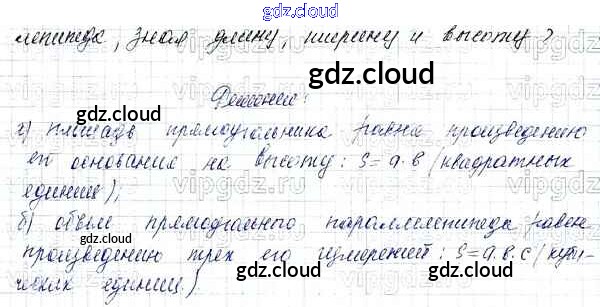 gdz.cloud
лепипеда, зная длину, ширину и высоту?
gdz.cloud
gdz.cloud
Решение:
а) площадь прямоугольника равна произведению
его основание на высоту: S = a·в (квадратных
единиц);
gdz.cloud
б) объем прямоугольного параллелепипеда равен
произведению трех его измерений: S = a·в·c (куби-
ческих единиц).
gdz.cloud
gdz.cloud
vipgdz.ru